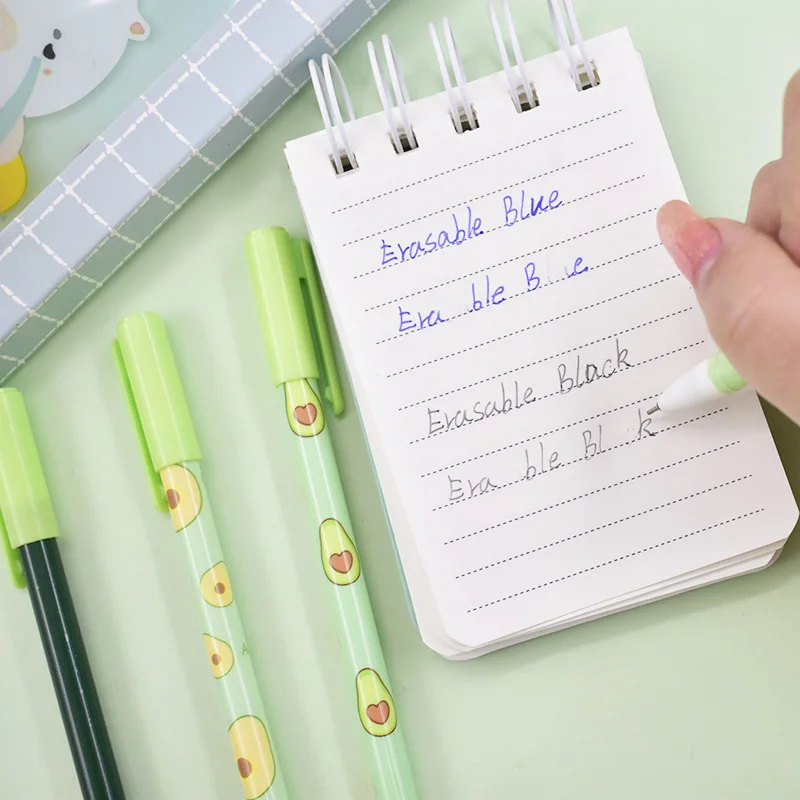 Erasable Blue
Era ble B e
Erasable Black
Era ble Bl k